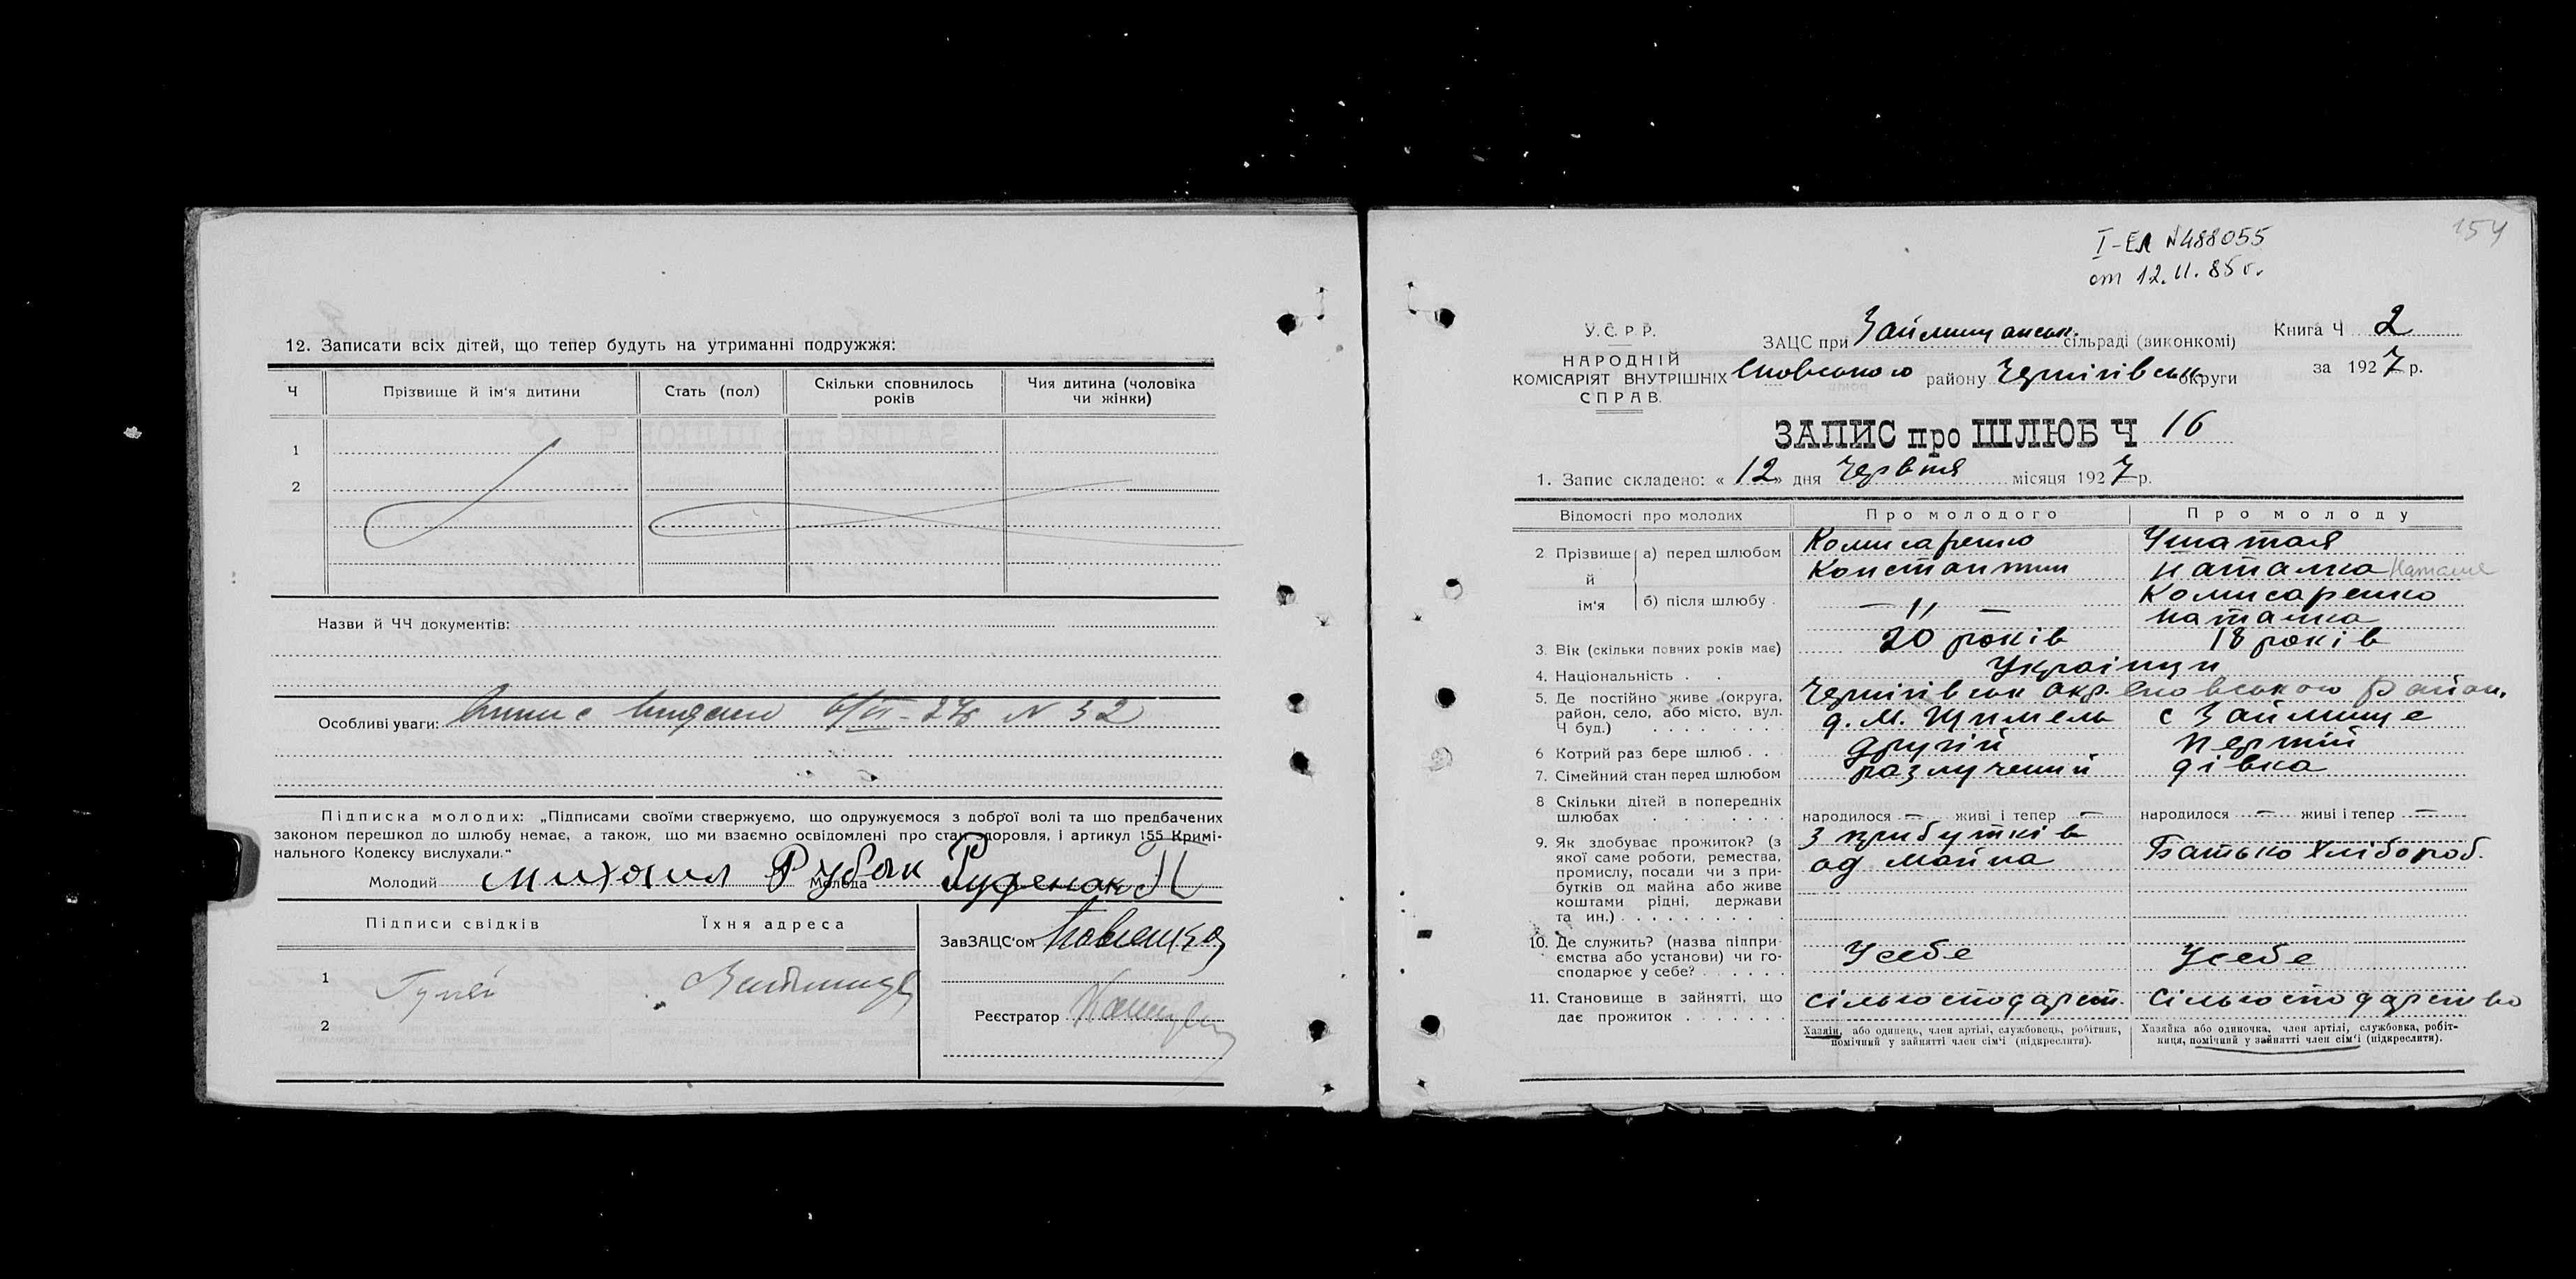 12. Записати всіх дітей, що тепер будуть на утриманні подружжя:
Ч
Прізвище й ім'я дитини
Стать (пол)
Скільки сповнилось років
Чия дитина (чоловіка чи жінки)
1
2
Назви й ЧЧ документів:
Особливі уваги: N 32
Підписка молодих: „Підписами своїми стверджуємо, що одружуємося з доброї волі та що предбачених
законом перешкод до шлюбу немає, а також, що ми взаємно освідомлені про стан здоровля, і артикул 155 Кримі-
нального Кодексу вислухали."
Молодий Михаил Рубан Молода
Підписи свідків
Їхня адреса
1
2
ЗавЗАЦС'ом
Реєстратор
154
I-ЕЛ №488055
от 12.11.85г.
У.С.Р.Р.
НАРОДНІЙ
КОМІСАРІЯТ ВНУТРІШНІХ
СПРАВ.
ЗАЦС при Займищанськ. сільраді (виконкомі)
Сновського району Чернігівськ округи
Книга Ч 2
за 1927 р.
ЗАПИС про ШЛЮБ Ч 16
1. Запис складено: « 12 » дня Червня місяця 1927 р.
Відомості про молодих
Про молодого
Про молоду
2 Прізвище й ім'я
а) перед шлюбом
Комисаренко
Константин
наталка
б) після шлюбу
— 11 —
Комисаренко
наталка
3. Вік (скільки повних років має)
20 років
18 років
4. Національність
Українци
5. Де постійно живе (округа,
район, село, або місто, вул.
Ч буд.)
Чернігівськ окр. Сновського район.
д. М. Щимель
с Займище
6 Котрий раз бере шлюб
другій
першій
7. Сімейний стан перед шлюбом
разлученій
дівка
8 Скільки дітей в попередніх
шлюбах
народилося — живі і тепер —
народилося — живі і тепер —
9. Як здобуває прожиток? (з
якої саме роботи, ремества,
промислу, посади чи з при-
бутків од майна або живе
коштами рідні, держави
та ин.)
З прибутків
од майна
Батько хлібороб.
10. Де служить? (назва підпри-
ємства або установи) чи го-
сподарює у себе?
У себе
У себе
11. Становище в зайнятті, що
дає прожиток
Сількосподарст.
Сількосподарство
Хазяїн, або одинець, член артілі, службовець, робітник,
помічний у зайнятті член сім'ї (підкреслити).
Хазяйка або одиночка, член артілі, службовка, робіт-
ниця, помічний у зайнятті член сім'ї (підкреслити).